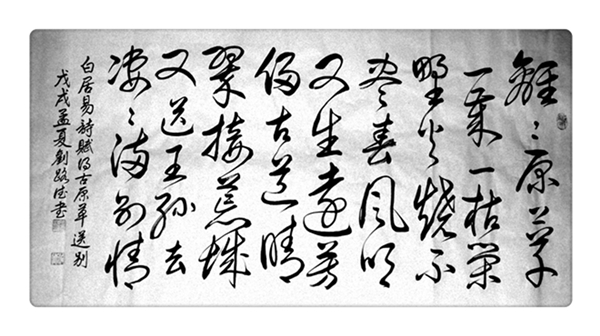 離〻原上草
一歲一枯榮
野火燒不
盡春風吹
又生遠芳
侵古道晴
翠接荒城
又送王孫去
凄〻滿別情
白居易詩賦得古原草送別
戊戌孟夏劉路書